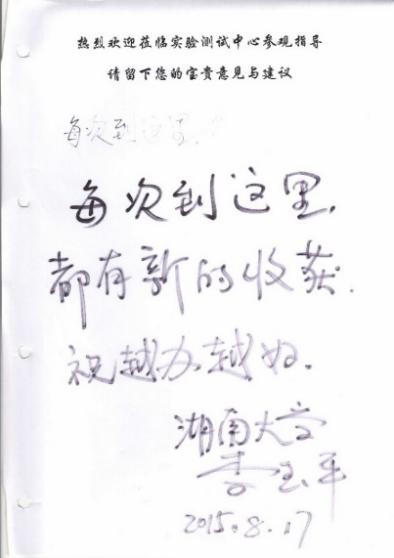 热烈欢迎莅临实验测试中心参观指导
请留下您的宝贵意见与建议
每次到这里,
每次到这里,
都有新的收获.
祝越办越好.
湖南大学
李玉平
2015.8.17